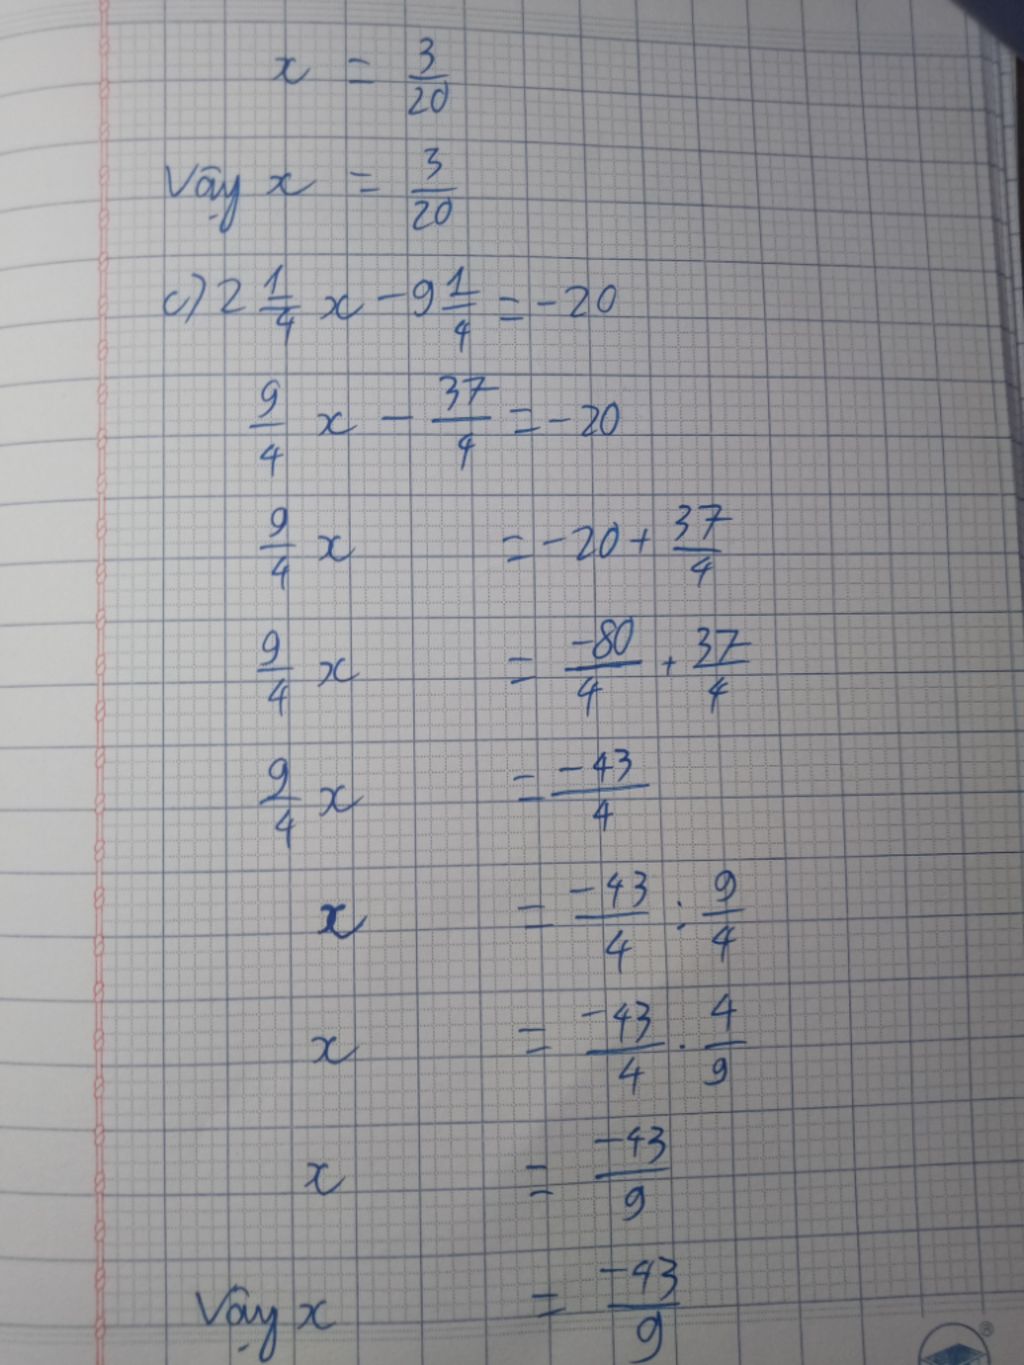 x = 3/20
Vậy x = 3/20
c) 2 1/4 x - 9 1/4 = -20
9/4 x - 37/4 = -20
9/4 x = -20 + 37/4
9/4 x = -80/4 + 37/4
9/4 x = -43/4
x = -43/4 : 9/4
x = -43/4 . 4/9
x = -43/9
Vậy x = -43/9
®